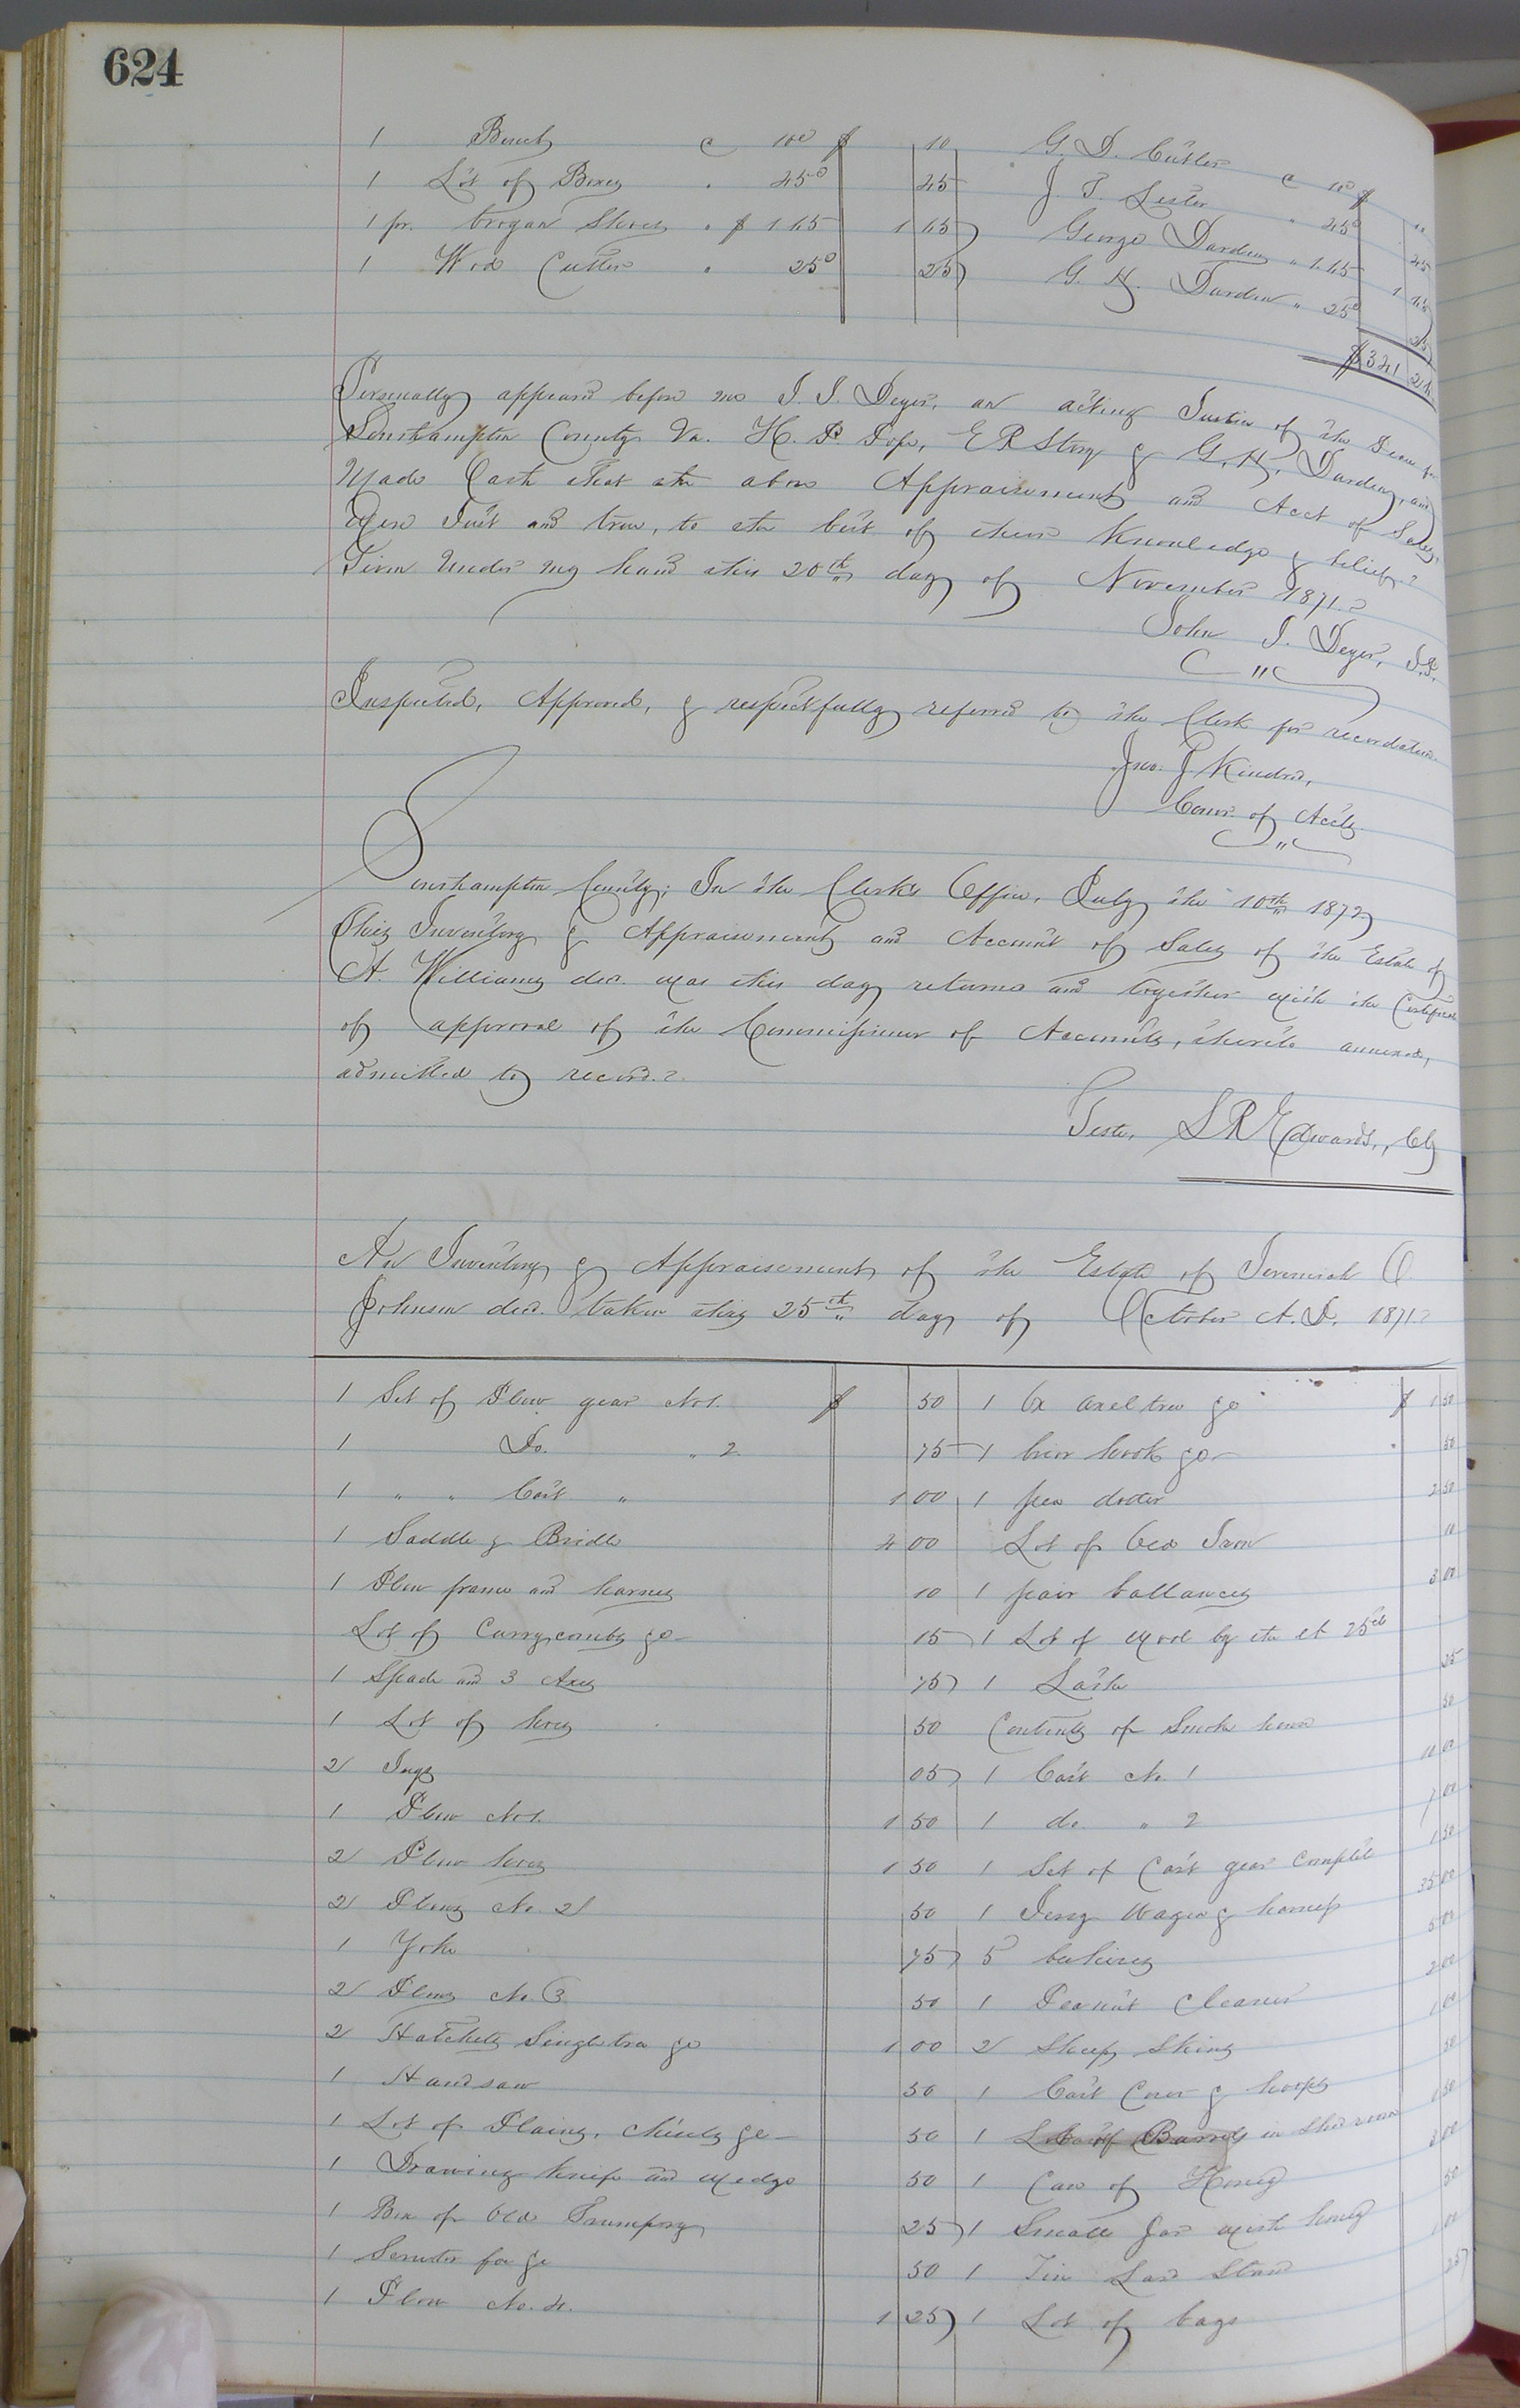 624
1 Bench @ 10c $ 10 G. D. Cutler @ 10c $ 10
1 Lot of Boxes " 45c 45 J. T. Lester " 45c 45
1 pr. brogan Shoes " $1.15 1 15 George Darden " 1.15 1 15
1 Wood Cutter " 25c 25 G. H. Darden " 25c 25
$341 24
Personally appeard before me J. J. Deyer, an acting Justice of the Peace for
Southampton County Va. H. P. Pope, E R Story & G. H. Darden, and
Made Oath that the above Appraisement and Acct of Sales,
Were Just and true, to the best of their Knowledge & belief.
Given Under My hand this 20th day of November 1871.
John J. Deyer, J.P.
Inspected, Approved, & respectfully referred to the Clerk for recordation.
Jno. J Kindred,
Comr. of Accts.
Southampton County: In the Clerk's Office, July the 10th 1872
This Inventory & Appraisement and Account of Sales of the Estate of
A. Williams dec. was this day returned and together with the Certificate
of approval of the Commissioner of Accounts, thereto annexed,
admitted to record.
Teste, L R Edwards, Clk
An Inventory & Appraisement of the Estate of Jeremiah O
Johnson decd. taken this 25th day of October A.D. 1871.
1 Set of Plow gear No 1. $ 50 1 Ox axeltree &c $ 1 50
1 Do. " 2 75 1 brier hook &c 50
1 " " Cart " 1 00 1 pea 2 50
1 Saddle & Bridle 4 00 Lot of Old Iron 10
1 Plow frame and harness 10 1 pair ballances 3 00
Lot of Currycombs &c 15 1 Lot of wool by the lb 25cts
1 Spade and 3 Axes 75 1 Lathe 25
1 Lot of hoes 50 Contents of Smoke house 50
2 Jugs 05 1 Cart No. 1 10 00
1 Plow No 1. 1 50 1 do. " 2 7 00
2 Plow hoes 1 50 1 Set of Cart gear Complete 1 50
2 Plows No. 2 50 1 Jersy Wagon & harness 35 00
1 Yoke 75 5 beehives 5 00
2 Plows No. 3 50 1 Peanut Cleaner 2 00
2 Hatchets Singletree &c 1 00 2 Sheep Skins 1 00
1 Hand saw 50 1 Cart Cover & hoops 50
1 Lot of Plains, Chisels &c 50 1 Lot of Barrels in Shed room 1 50
1 Drawing Knife and wedge 50 1 Case of Honey 3 00
1 Box of Old Trumpery 25 1 Small Jar with honey 50
1 &c 50 1 Tin Lard Stand 1 00
1 Plow No. 4. 1 25 1 Lot of bags 25